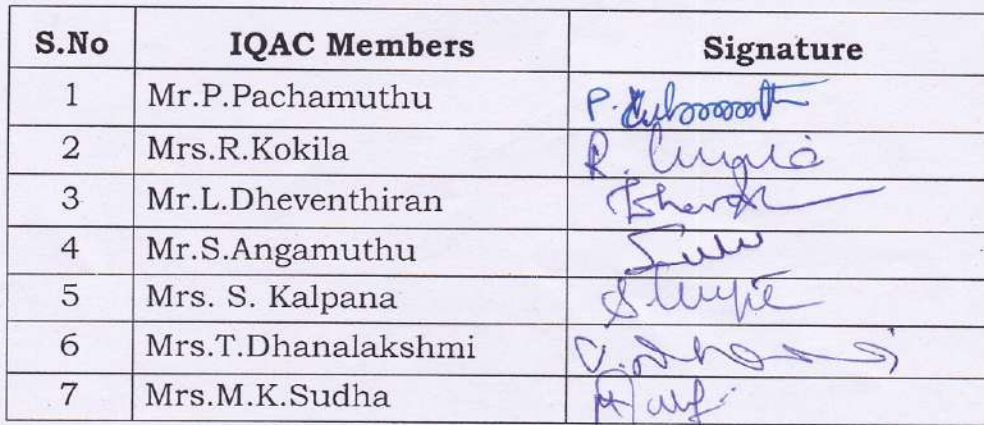 S.No IQAC Members Signature
1 Mr.P.Pachamuthu P.
2 Mrs.R.Kokila R.
3 Mr.L.Dheventhiran
4 Mr.S.Angamuthu
5 Mrs. S. Kalpana
6 Mrs.T.Dhanalakshmi
7 Mrs.M.K.Sudha